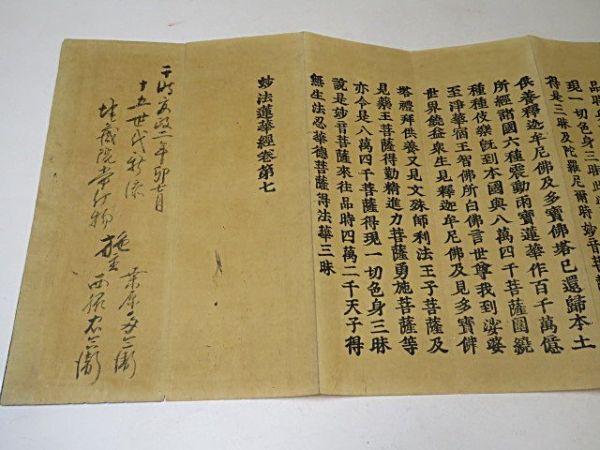 現一切色身三昧
得是三昧及陀羅尼爾時妙音菩薩
供養釋迦牟尼佛及多寶佛塔已還歸本土
所經諸國六種震動雨寶蓮華作百千萬億
種種伎樂既到本國與八萬四千菩薩圍繞
至淨華宿王智佛所白佛言世尊我到娑婆
世界饒益衆生見釋迦牟尼佛及見多寶佛
塔禮拜供養又見文殊師利法王子菩薩及
見藥王菩薩得勤精進力菩薩勇施菩薩等
亦令是八萬四千菩薩得現一切色身三昧
說是妙音菩薩來往品時四萬二千天子得
無生法忍華德菩薩得法華三昧
妙法蓮華經卷第七
于時安政二年卯七月
十五世代新添
地蔵院常什物 施主